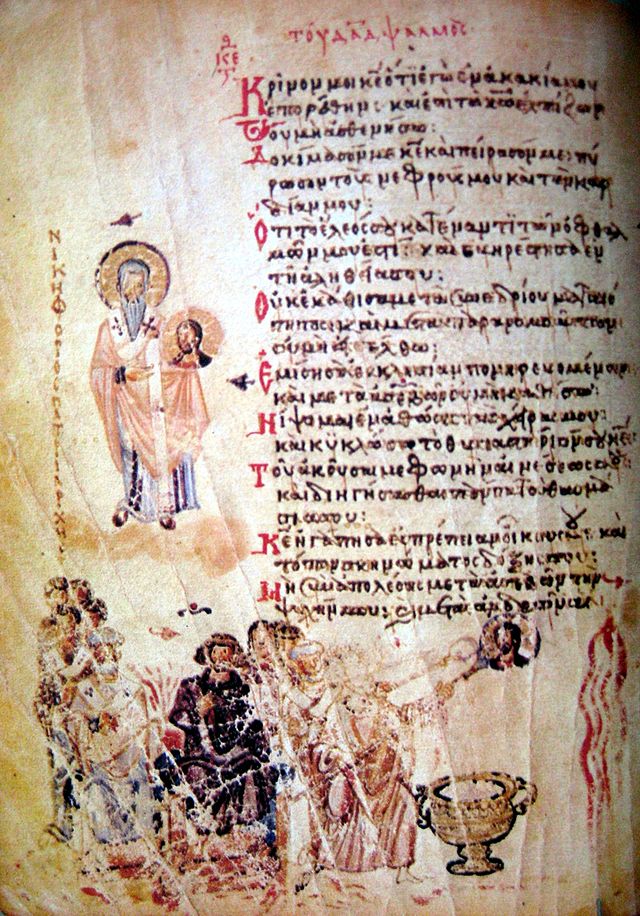 τοῦ δαδ ψαλμος
κε
Κρίνόν μοι κε ὅτι ἐγὼ ἐν ακακία μου
ἐπορεύθην: καὶ ἐπὶ τῷ κω ἐλπίζων
οὐ μὴ ἀσθενήσω:
Δοκίμασόν με κε καὶ πείρασόν με: πύ
ρωσον τοὺς νεφρούς μου καὶ τὴν καρ
δίαν μου:
Ὅτι τὸ ἔλεός σου κατέναντι τῶν ὀφθαλ
μῶν μου ἐστί: καὶ εὐηρέστησα ἐν
τῇ ἀληθεία σου:
Οὐκ ἐκάθισα μετὰ συνεδρίου ματαιό
τητος: καὶ μετὰ παρανομούντων
οὐ μὴ εἰσέλθω:
Ἐμίσησα ἐκκλησίαν πονηρευομένων
καὶ μετὰ ἀσεβῶν οὐ μὴ καθίσω:
Νίψομαι ἐν ἀθώοις τὰς χεῖρας μου:
καὶ κυκλώσω τὸ θυσιαστήριόν σου κε
Τοῦ ἀκοῦσαί με φωνὴν αἰνέσεως
καὶ διηγήσασθαι τὰ θαυμά
σιά σου:
Κε ἠγάπησα εὐπρέπειαν οἴκου σου: καὶ
τόπον σκηνώματος δόξης σου:
Μὴ συναπολέσης μετὰ ἀσεβῶν τὴν
ψυχήν μου:
ΝΙΚΗΦΟΡΟΣ ΠΑΤΡΙΑΡΧΗΣ